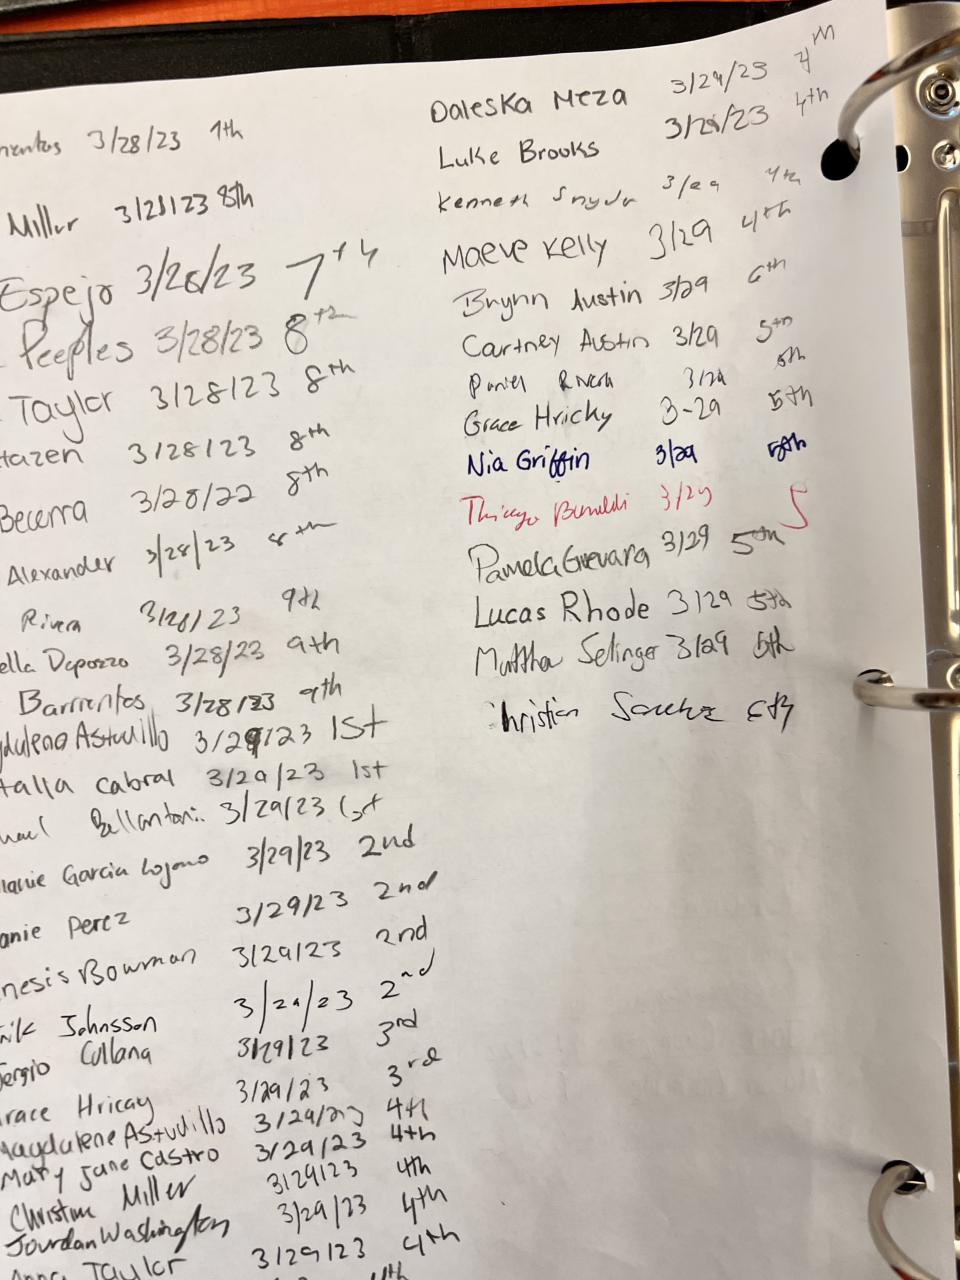 3/28/23 9th
Miller 3/28/23 8th
Espejo 3/28/23 7th
Peeples 3/28/23 8th
Taylor 3/28/23 8th
Hazen 3/28/23 8th
Becerra 3/28/22 8th
Alexander 3/28/23 8th
Rivera 3/28/23 9th
ella Dapozzo 3/28/23 9th
Barrientos 3/28/23 9th
gdulena Astudillo 3/29/23 1st
talia Cabral 3/29/23 1st
Bellantoni 3/29/23 1st
lanie Garcia Lozano 3/29/23 2nd
anie Perez 3/29/23 2nd
nesis Bowman 3/29/23 2nd
rik Johnsson 3/29/23 2nd
ergio Collana 3/29/23 3rd
race Hricay 3/29/23 3rd
Magdulene Astudillo 3/29/23 4th
Mary Jane Castro 3/29/23 4th
Christine Miller 3/29/23 4th
Jourdan Washington 3/29/23 4th
Anna Taylor 3/29/23 4th
4th
Daleska Meza 3/29/23 4th
Luke Brooks 3/29/23 4th
Kenneth Snyder 3/29 4th
Maeve Kelly 3/29 4th
Brynn Austin 3/29 6th
Cartney Austin 3/29 5th
Daniel Rivera 3/29 5th
Grace Hricky 3-29 5th
Nia Griffin 3/29 5th
Thiago 3/29 5
Pamela Guevara 3/29 5th
Lucas Rhode 3/29 5th
Matthew Selinger 3/29 5th
Christian Sanchez 6th